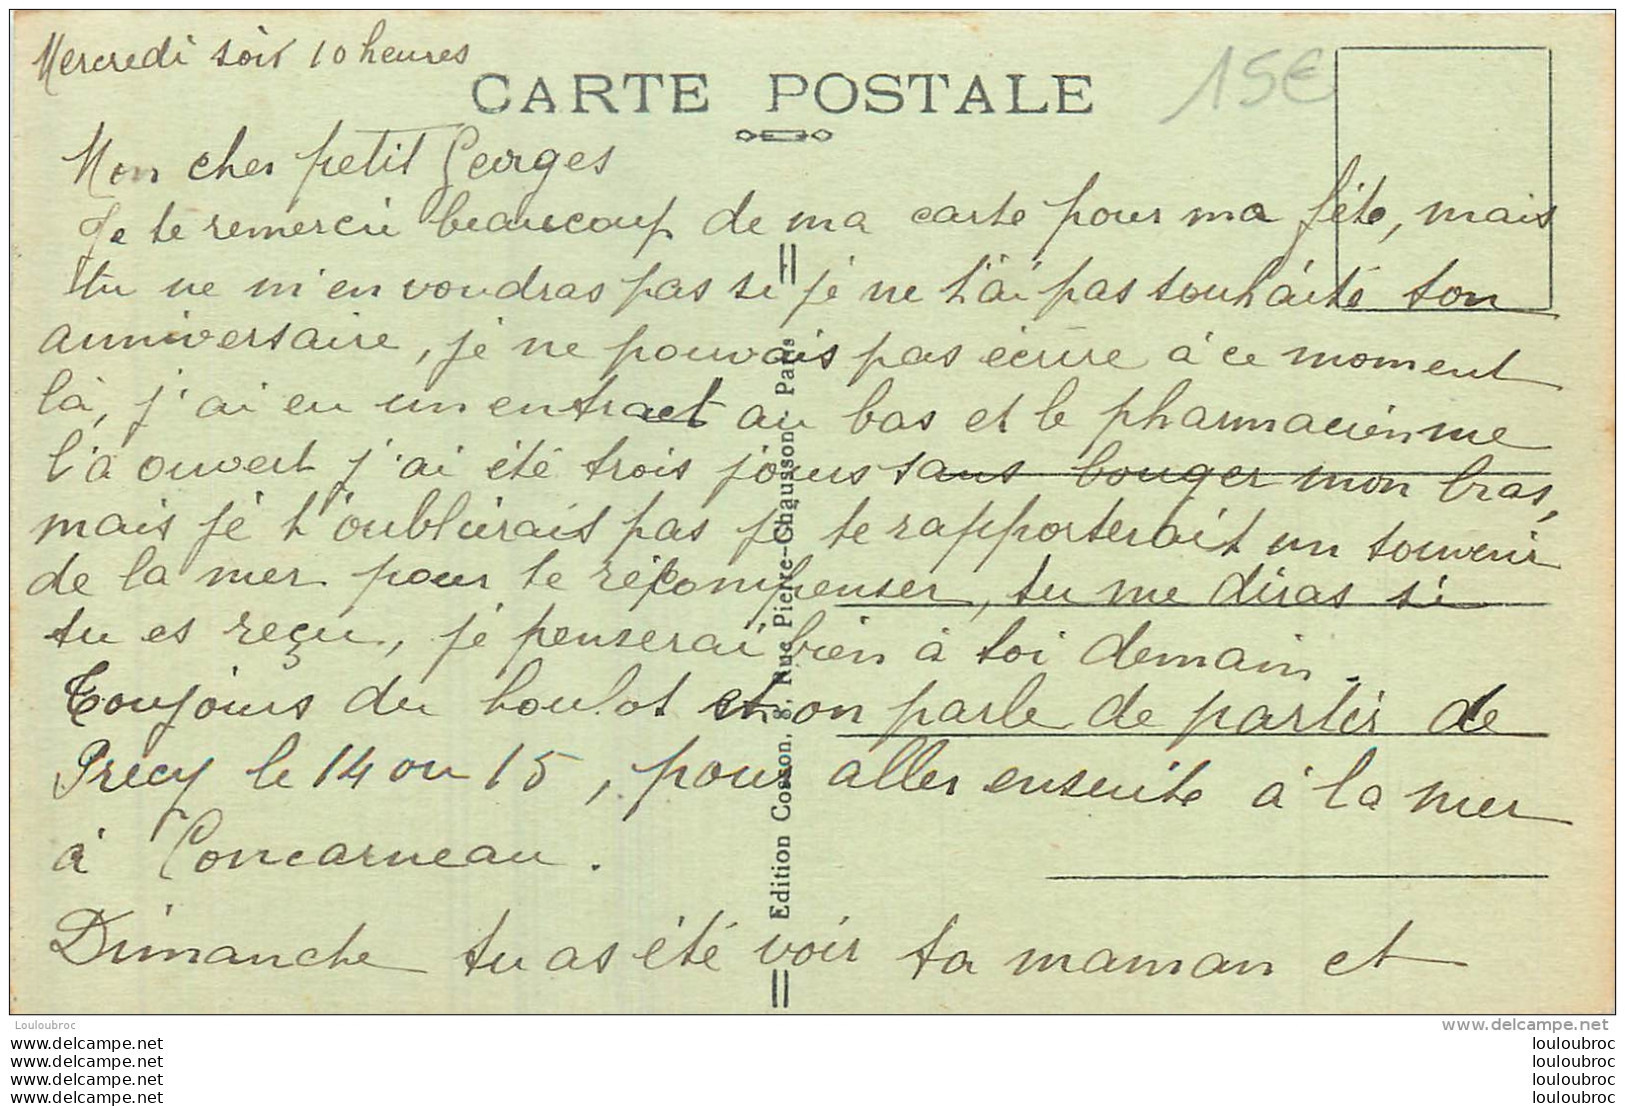 Mercredi soir 10 heures
15€
CARTE POSTALE
Mon cher petit Georges
Je te remercii beaucoup de ma carte pour ma fête, mais
tu ne m'en voudras pas si je ne t'ai pas souhaité ton
anniversaire, je ne pouvais pas écrire à ce moment
là, j'ai eu un entract au bas et le pharmacienme
l'a ouvert j'ai été trois jours sans bouger mon bras,
mais je t'oublierais pas je te rapporterait un souvenir
de la mer pour te récompenser, tu me diras si
tu es reçu, je penserai bien à toi demain.
Toujours du boulot et on parle de partir de
Precy le 14 ou 15, pour aller ensuite à la mer
à Concarneau.
Dimanche tu as été voir ta maman et
Edition Cosson, 8, Rue Pierre-Chausson, Paris
Louloubroc
www.delcampe.net
louloubroc louloubroc
louloubroc louloubroc
louloubroc louloubroc
louloubroc louloubroc